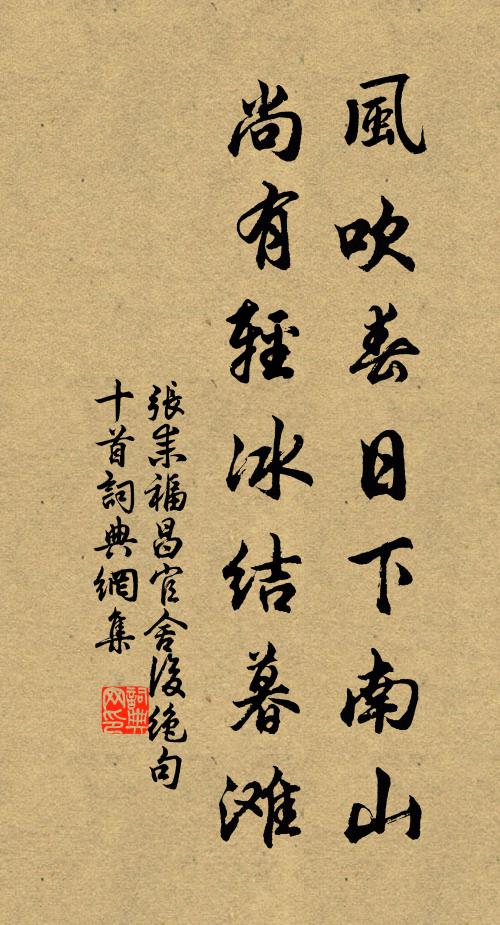 風吹春日下南山
尚有輕冰結暮滩
張耒福昌官舍後絶句
十首詞典網集
詞典网印